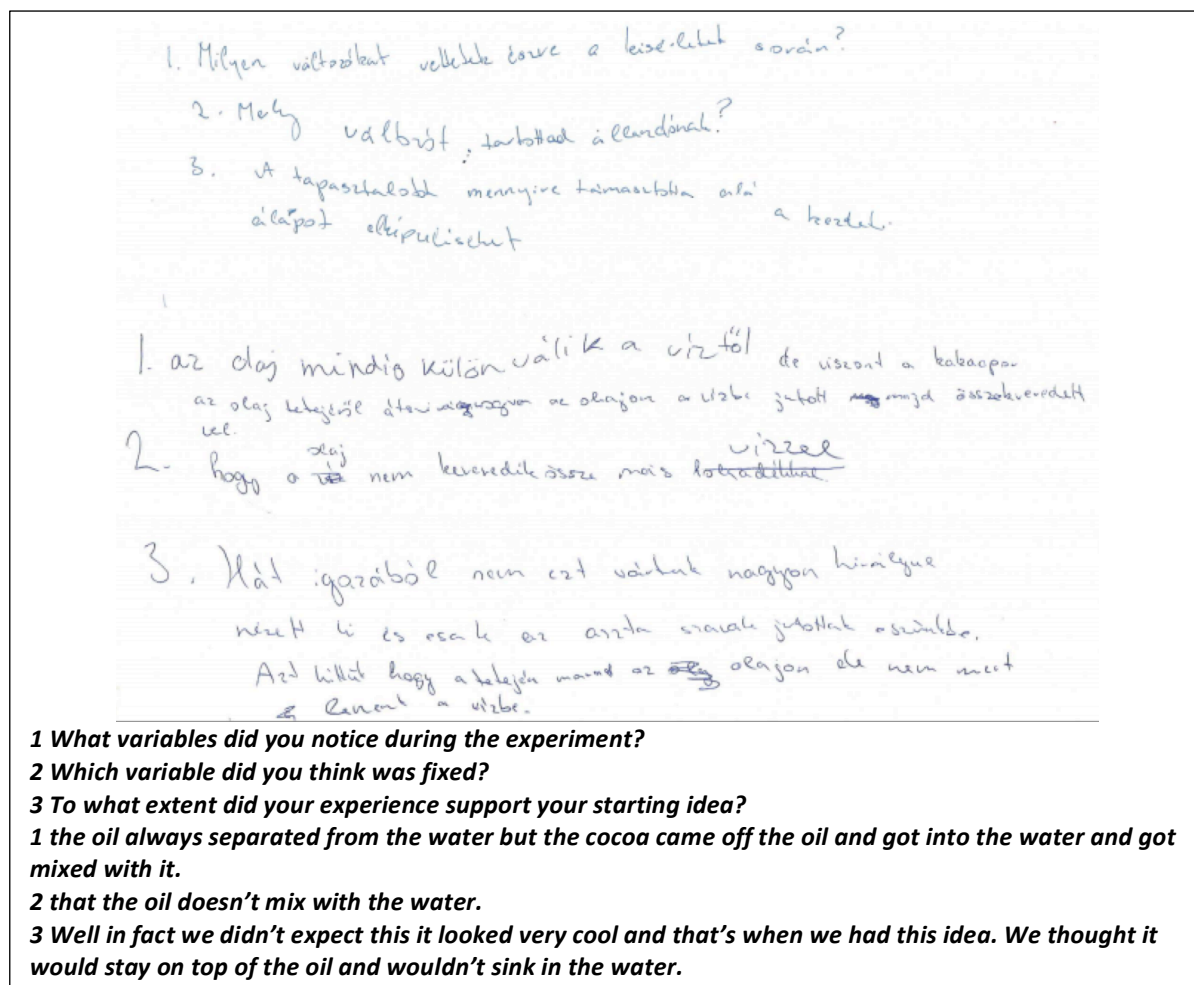 1. Milyen változókat vettetek észre a kísérletet során?
2. Mely változót tartottad állandónak?
3. A tapasztalobb mennyire támasztotta alá a kezdeti
állápot elképzelését
1. az olaj mindig külön válik a víztől de viszont a kakaopor
az olaj tetejéről az olajon a vízbe jutott majd összekveredett
vel.
2. hogy a olaj nem keveredik össze más vízzel
3. Hát igazából nem ezt vártuk nagyon királyul
nézett ki és csak az aszta szavak jutottak eszünkbe.
Azt hittük hogy a tetején marad az olajon de nem mert
lement a vízbe.
1 What variables did you notice during the experiment?
2 Which variable did you think was fixed?
3 To what extent did your experience support your starting idea?
1 the oil always separated from the water but the cocoa came off the oil and got into the water and got
mixed with it.
2 that the oil doesn’t mix with the water.
3 Well in fact we didn’t expect this it looked very cool and that’s when we had this idea. We thought it
would stay on top of the oil and wouldn’t sink in the water.